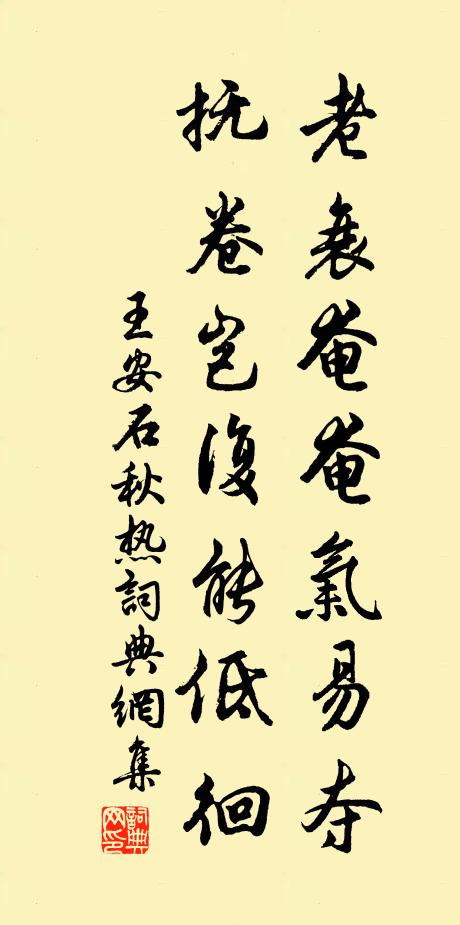 老衰奄奄氣易夺
抚卷岂復能低徊
王安石秋热詞典網集
詞典网印